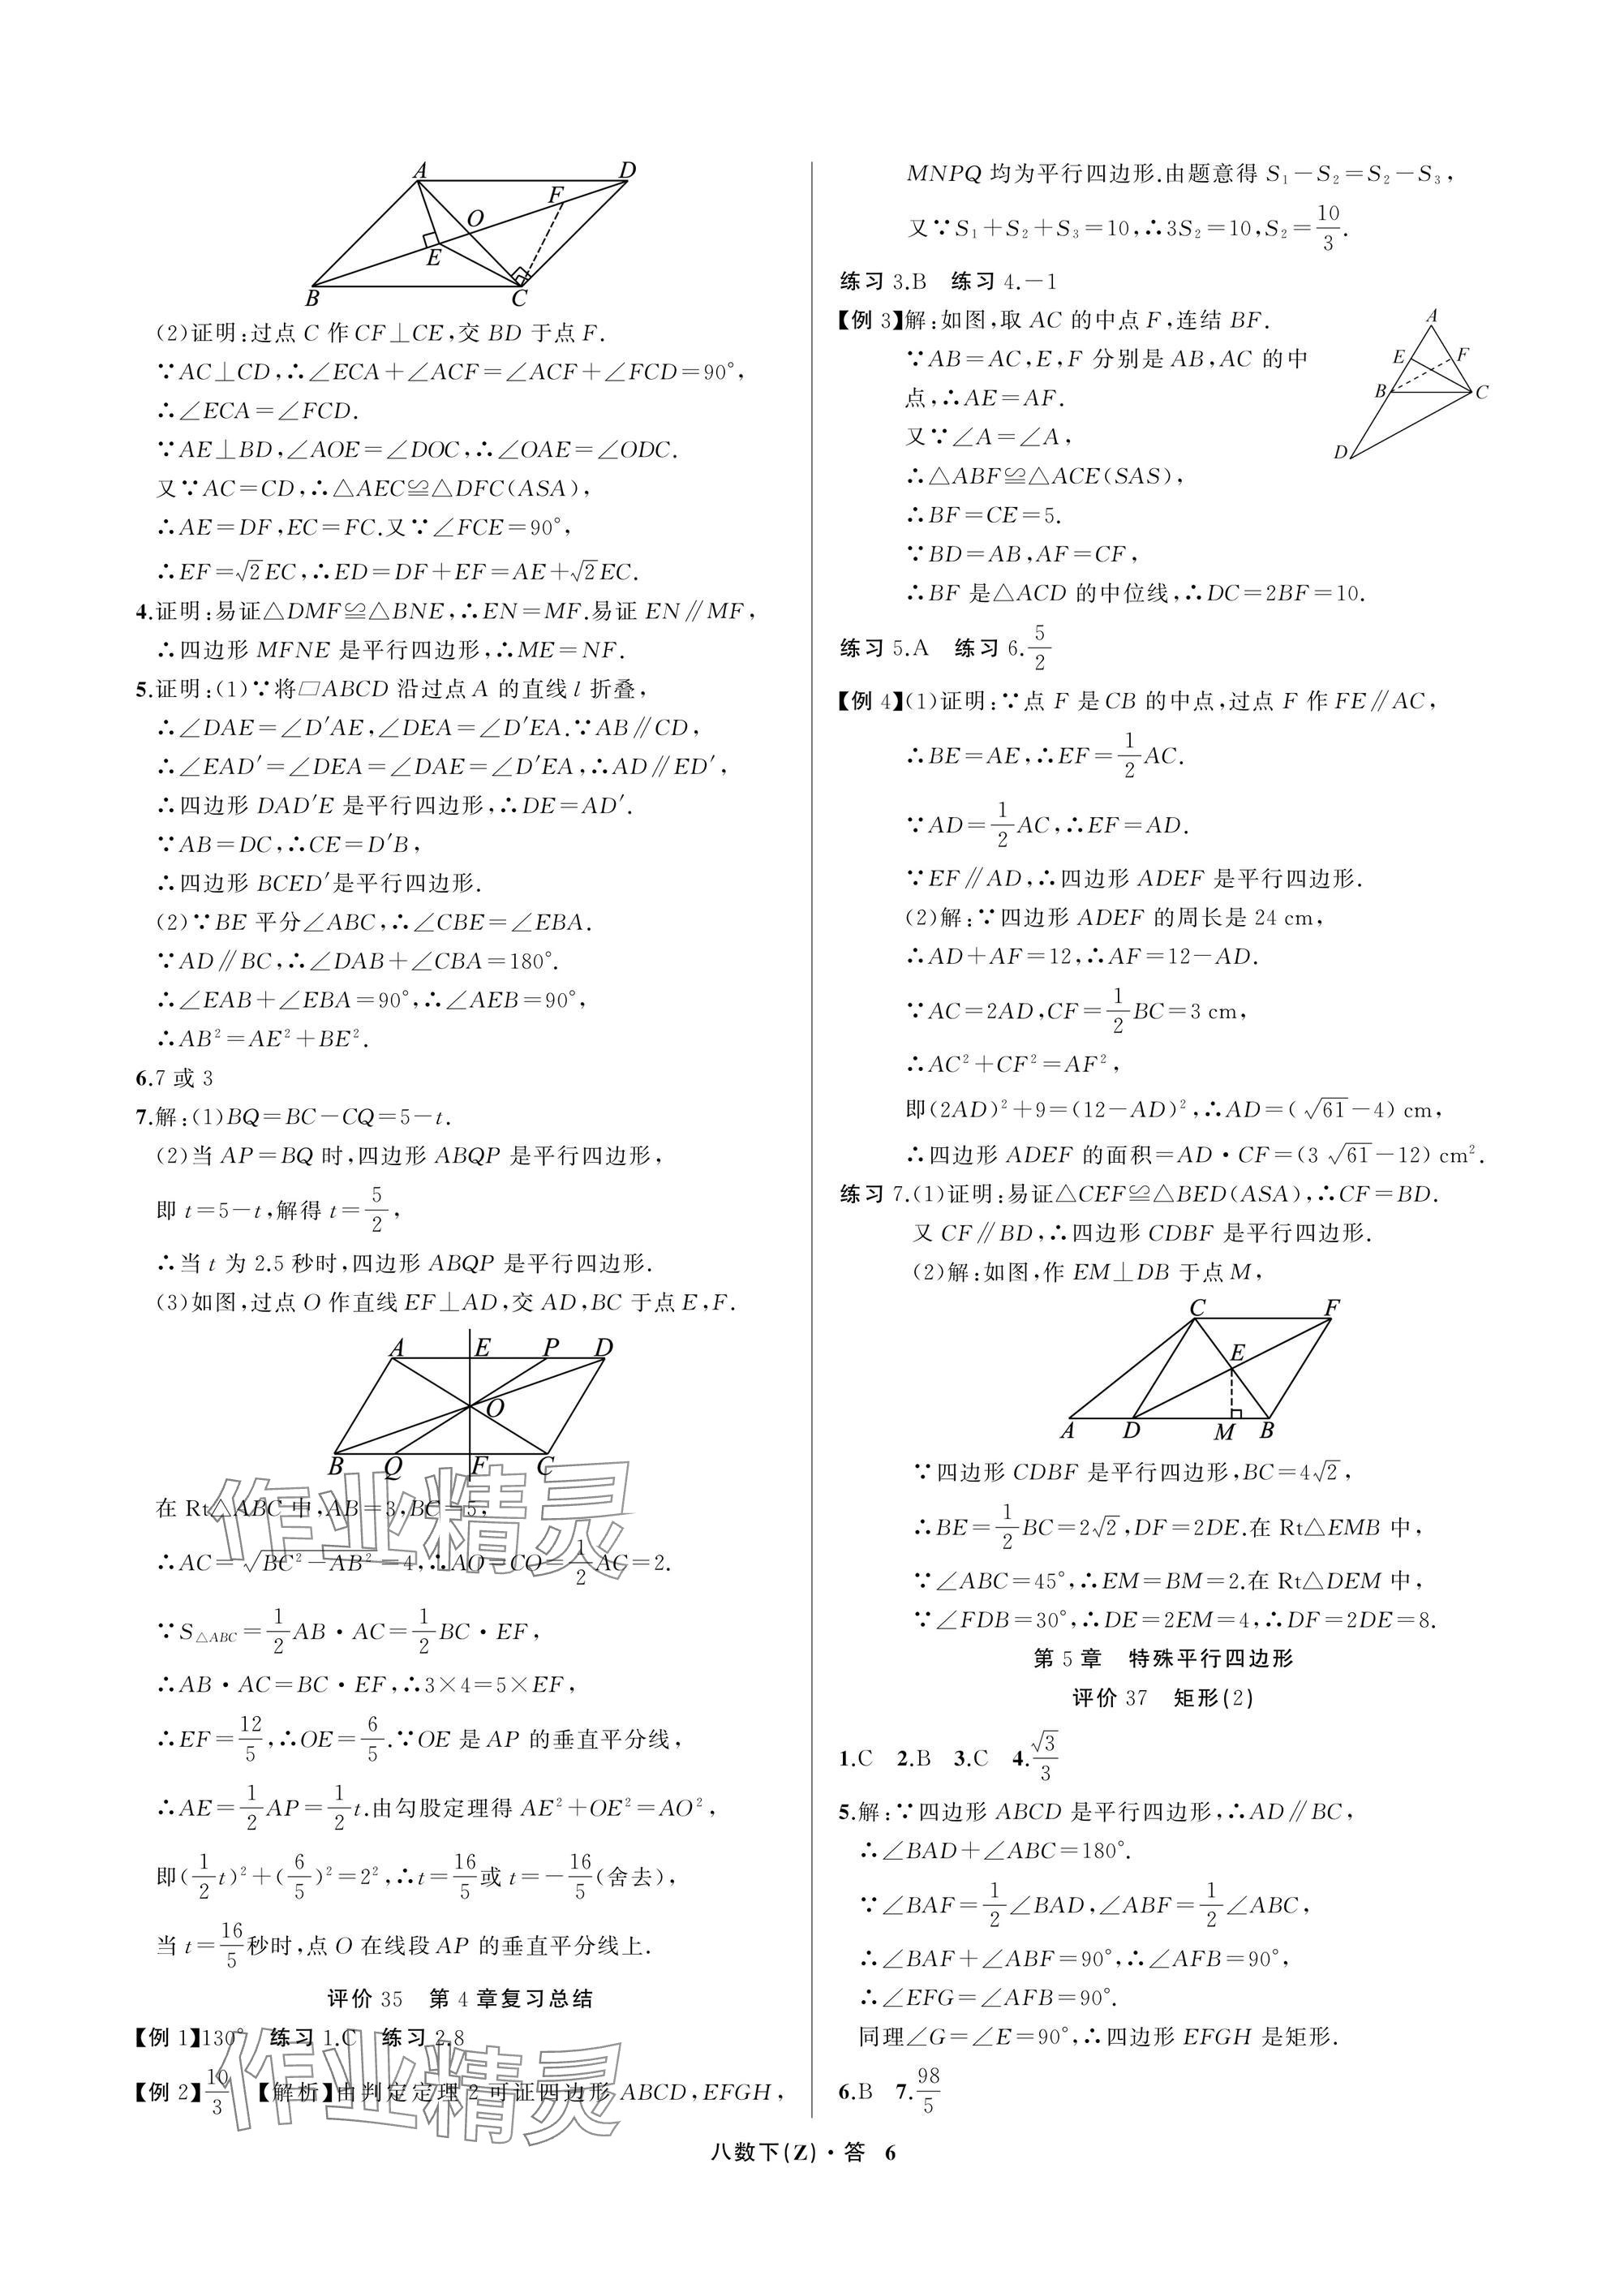 A D F O E B C
(2)证明:过点 C 作 CF⊥CE,交 BD 于点 F.
∵AC⊥CD,∴∠ECA+∠ACF=∠ACF+∠FCD=90°,
∴∠ECA=∠FCD.
∵AE⊥BD,∠AOE=∠DOC,∴∠OAE=∠ODC.
又∵AC=CD,∴△AEC≌△DFC(ASA),
∴AE=DF,EC=FC.又∵∠FCE=90°,
∴EF=√2EC,∴ED=DF+EF=AE+√2EC.
4.证明:易证△DMF≌△BNE,∴EN=MF.易证 EN∥MF,
∴四边形 MFNE 是平行四边形,∴ME=NF.
5.证明:(1)∵将▱ABCD 沿过点 A 的直线 l 折叠,
∴∠DAE=∠D′AE,∠DEA=∠D′EA.∵AB∥CD,
∴∠EAD′=∠DEA=∠DAE=∠D′EA,∴AD∥ED′,
∴四边形 DAD′E 是平行四边形,∴DE=AD′.
∵AB=DC,∴CE=D′B,
∴四边形 BCED′是平行四边形.
(2)∵BE 平分∠ABC,∴∠CBE=∠EBA.
∵AD∥BC,∴∠DAB+∠CBA=180°.
∴∠EAB+∠EBA=90°,∴∠AEB=90°,
∴AB²=AE²+BE².
6.7 或 3
7.解:(1)BQ=BC-CQ=5-t.
(2)当 AP=BQ 时,四边形 ABQP 是平行四边形,
即 t=5-t,解得 t=5/2,
∴当 t 为 2.5 秒时,四边形 ABQP 是平行四边形.
(3)如图,过点 O 作直线 EF⊥AD,交 AD,BC 于点 E,F.
A E P D O B Q F C
在 Rt△ABC 中,AB=3,BC=5,
∴AC=√(BC²-AB²)=4,∴AO=CO=1/2AC=2.
∵S△ABC=1/2AB·AC=1/2BC·EF,
∴AB·AC=BC·EF,∴3×4=5×EF,
∴EF=12/5,∴OE=6/5.∵OE 是 AP 的垂直平分线,
∴AE=1/2AP=1/2t.由勾股定理得 AE²+OE²=AO²,
即(1/2t)²+(6/5)²=2²,∴t=16/5或 t=-16/5(舍去),
当 t=16/5秒时,点 O 在线段 AP 的垂直平分线上.
评价 35 第 4 章复习总结
【例 1】130° 练习 1.C 练习 2.8
【例 2】10/3 【解析】由判定定理 2 可证四边形 ABCD,EFGH,
MNPQ 均为平行四边形.由题意得 S₁-S₂=S₂-S₃,
又∵S₁+S₂+S₃=10,∴3S₂=10,S₂=10/3.
练习 3.B 练习 4.-1
【例 3】解:如图,取 AC 的中点 F,连结 BF.
∵AB=AC,E,F 分别是 AB,AC 的中
点,∴AE=AF.
又∵∠A=∠A,
∴△ABF≌△ACE(SAS),
∴BF=CE=5.
∵BD=AB,AF=CF,
∴BF 是△ACD 的中位线,∴DC=2BF=10.
A E F B C D
练习 5.A 练习 6.5/2
【例 4】(1)证明:∵点 F 是 CB 的中点,过点 F 作 FE∥AC,
∴BE=AE,∴EF=1/2AC.
∵AD=1/2AC,∴EF=AD.
∵EF∥AD,∴四边形 ADEF 是平行四边形.
(2)解:∵四边形 ADEF 的周长是 24 cm,
∴AD+AF=12,∴AF=12-AD.
∵AC=2AD,CF=1/2BC=3 cm,
∴AC²+CF²=AF²,
即(2AD)²+9=(12-AD)²,∴AD=(√61-4) cm,
∴四边形 ADEF 的面积=AD·CF=(3√61-12) cm².
练习 7.(1)证明:易证△CEF≌△BED(ASA),∴CF=BD.
又 CF∥BD,∴四边形 CDBF 是平行四边形.
(2)解:如图,作 EM⊥DB 于点 M,
C F E A D M B
∵四边形 CDBF 是平行四边形,BC=4√2,
∴BE=1/2BC=2√2,DF=2DE.在 Rt△EMB 中,
∵∠ABC=45°,∴EM=BM=2.在 Rt△DEM 中,
∵∠FDB=30°,∴DE=2EM=4,∴DF=2DE=8.
第 5 章 特殊平行四边形
评价 37 矩形(2)
1.C 2.B 3.C 4.√3/3
5.解:∵四边形 ABCD 是平行四边形,∴AD∥BC,
∴∠BAD+∠ABC=180°.
∵∠BAF=1/2∠BAD,∠ABF=1/2∠ABC,
∴∠BAF+∠ABF=90°,∴∠AFB=90°,
∴∠EFG=∠AFB=90°.
同理∠G=∠E=90°,∴四边形 EFGH 是矩形.
6.B 7.98/5
八数下(Z)·答 6
作业精灵
作业精灵